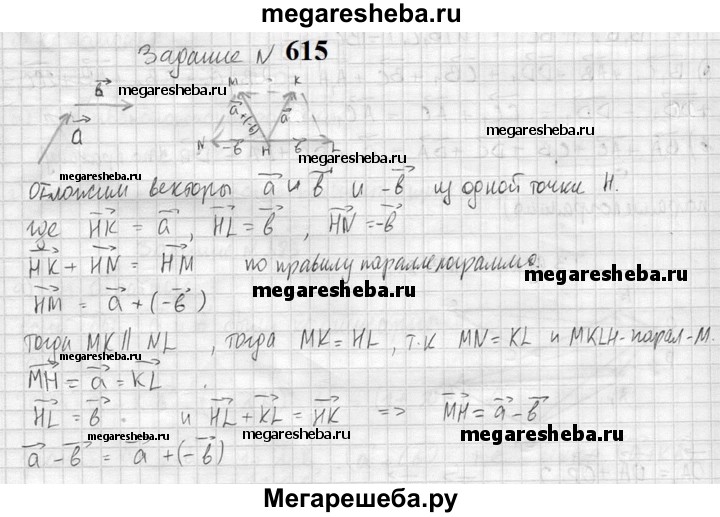 megaresheba.ru
Задание N 615
M K
megaresheba.ru
в
а+(-в) а
megaresheba.ru
а
N -в H в L
megaresheba.ru
отложим векторы а и в и -в из одной точки H.
где HK = а, HL = в, HN = -в
HK + HN = HM по правилу параллелограмма.
megaresheba.ru
HM = а + (-в)
megaresheba.ru
тогда MK || NL, тогда MK = HL, т.к MN = KL и MKLH-парал-м.
megaresheba.ru
MH = а = KL
HL = в и HL + KL = HK => MH = а - в
megaresheba.ru
megaresheba.ru
megaresheba.ru
а - в = а + (-в)
Мегарешеба.ру